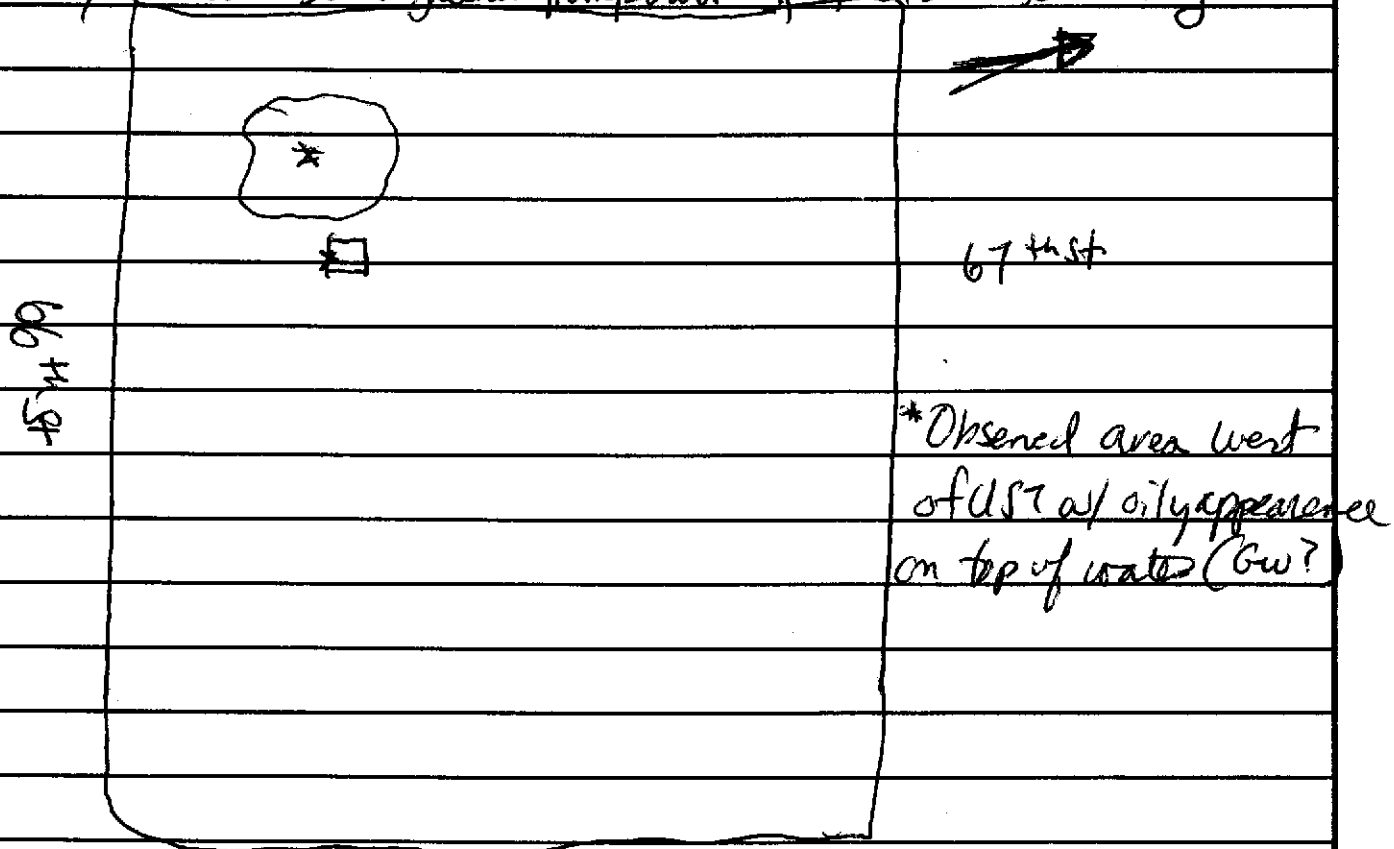 66th St
67th st
*Observed area west
of UST w/ oily appearence
on top of water (GW?)